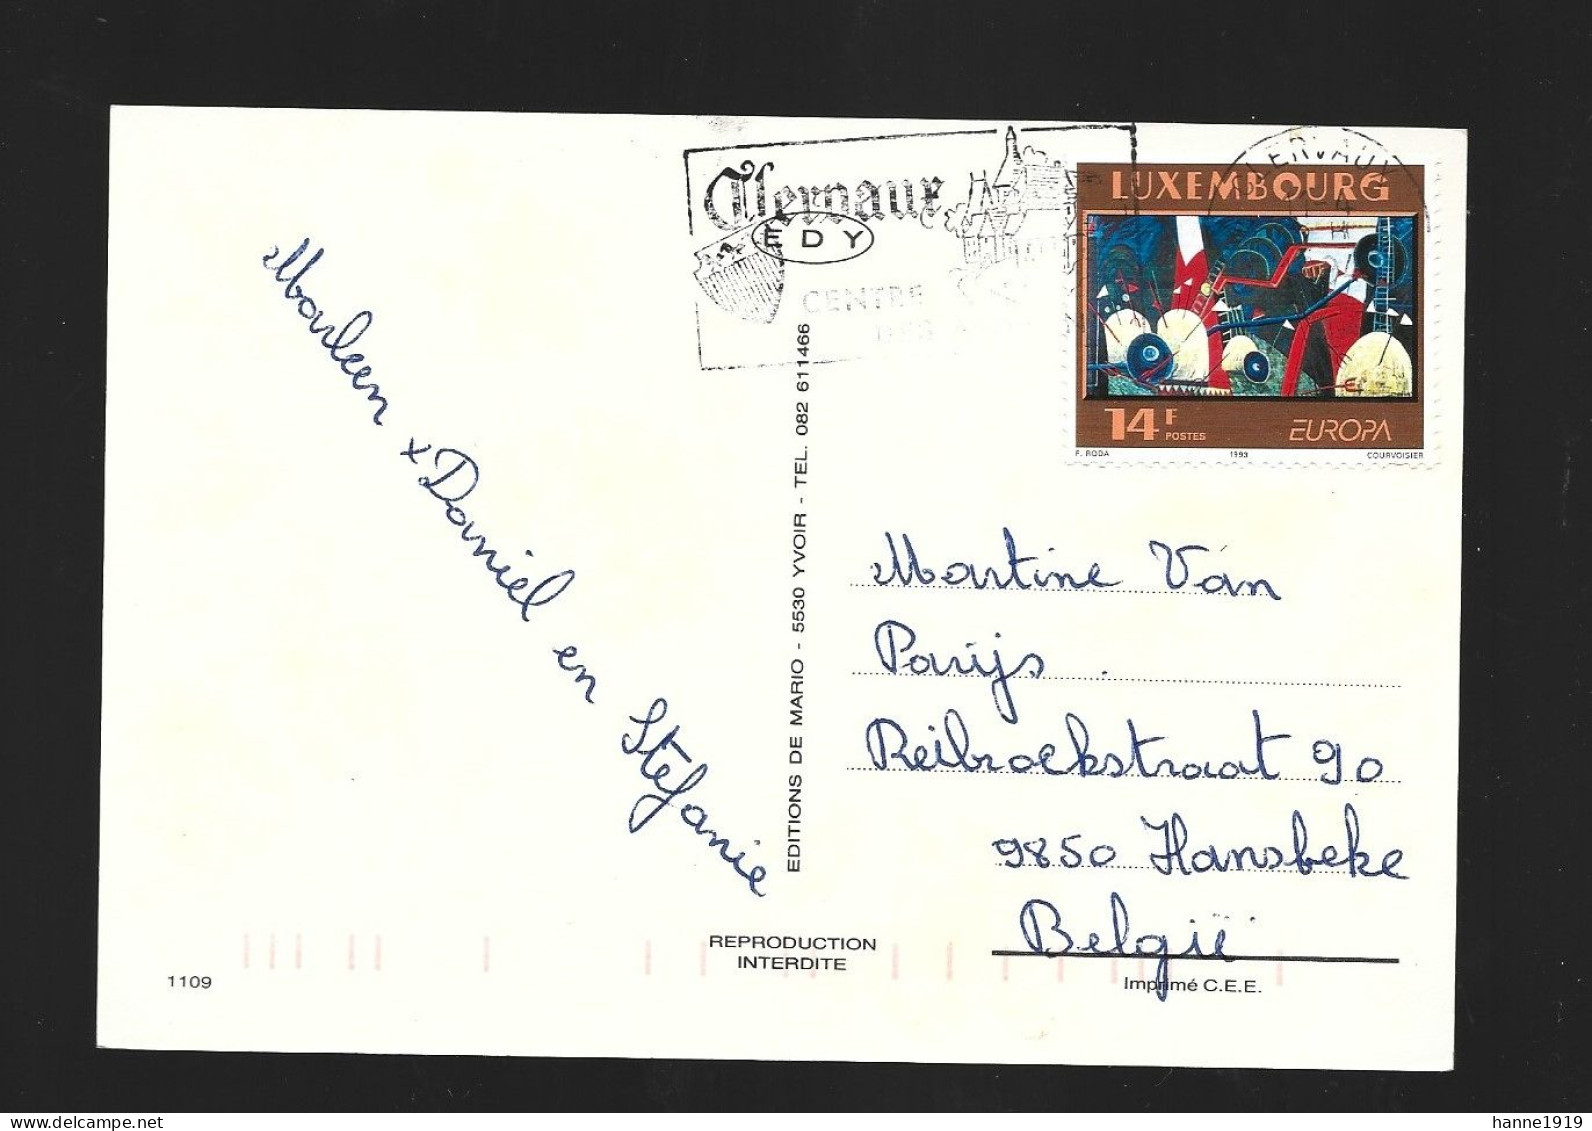 Clervaux
EDY
CENTRE
CLERVAUX
LUXEMBOURG
14F
POSTES
EUROPA
F. RODA 1993 COURVOISIER
Marleen + Daniël en Stefanie
EDITIONS DE MARIO - 5530 YVOIR - TEL. 082 611466
Martine Van
Parijs
Reibroekstraat 90
9850 Hansbeke
België
REPRODUCTION
INTERDITE
1109
Imprimé C.E.E.
hanne1919